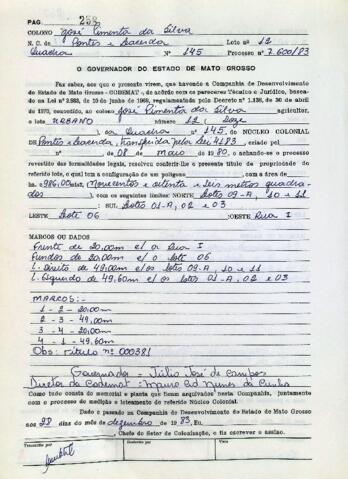 PAG. 258
COLONO José Pimenta da Silva
N. C. de Pontes e Lacerda Lote nº 12
Quadra Nº 145 Processo nº 7.600/83
O GOVERNADOR DO ESTADO DE MATO GROSSO
Faz saber, aos que o presente virem, que havendo a Companhia de Desenvolvimento
do Estado de Mato Grosso - CODEMAT -, de acôrdo com os pareceres Técnico e Jurídico, basea-
do na Lei nº 2.883, de 10 de junho de 1969, regulamentado pelo Decreto nº 1.138, de 30 de abril
de 1970, concedido, ao colono José Pimenta da Silva agricultor,
o lote URBANO número 12 (doze
), da Quadra nº 145, do NÚCLEO COLONIAL
DE Pontes e Lacerda, transferida pela lei 4183, criado pel
nº de 08 de maio de 1980, e achando-se o processo
revestido das formalidades legais, resolveu conferir-lhe o presente título de propriedade
do referido lote, o qual tem a configuração de um polígono com a área de
ha. 986,00 m2 (Novecentos e oitenta e seis metros quadra-
dos), com os seguintes limites: NORTE Lotes 09-A, 10 e
11 : SUL Lotes 01-A, 02 e 03
LESTE Lote 06 : OESTE Rua I
MARCOS OU DADOS
Frente de 20,00m c/ a Rua I
Fundos de 20,00m c/ o lote 06
L. Direito de 49,60m c/ os lotes 09-A, 10 e 11
L. Esquerdo de 49,60m c/ os lotes 01-A, 02 e 03
MARCOS:-
1 - 2 - 20,00m
2 - 3 - 49,00m
3 - 4 - 20,00m
4 - 1 - 49,60m
Obs: título nº 000381
Governador - Júlio José de Campos
Diretor da Codemat - Mauro Cid Nunes da Cunha
Como tudo consta do memorial e planta que ficam arquivados nesta Companhia, juntamente
com o processo de medição e loteamento do referido Núcleo Colonial.
Dado e passado na Companhia de Desenvolvimento do Estado de Mato Grosso
aos 28 dias do mês de dezembro de 1983. Eu,
Chefe do Setor de Colonização, o fiz escrever e assino.
Transcrito por
Conferido por
Visto